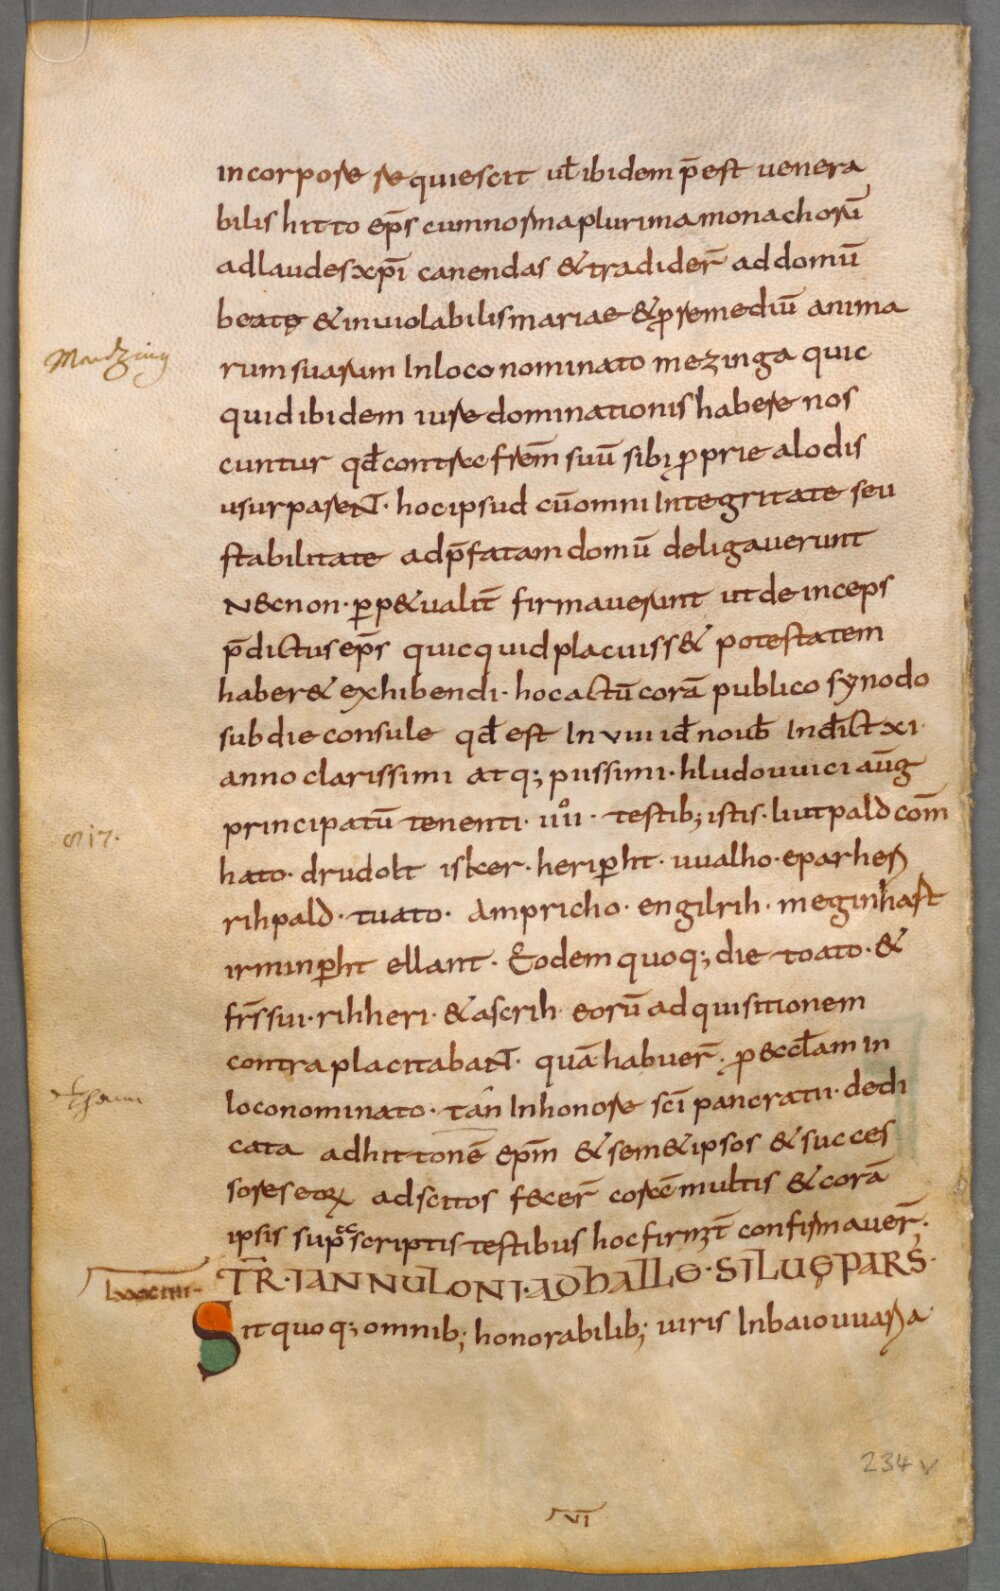 in corpore requiescit ul̄ ibidem p̄est venera
bilis hitto ep̄s cum norma plurima monachorū
ad laudes xp̄i canendas & tradider̄ ad domū
beatę & inuiolabilis mariae & ꝓ remediū anima
Mandzing
rum suarum In loco nominato mezinga quic
quid ibidem iure dominationis habere nos
cuntur qd̄ contra frēm suū sibi ꝓprie alodis
usurparent · hoc ipsud cū omni Integritate seu
stabilitate ad p̄fatam domū deligauerunt
Necnon · ꝑp&ualit̄ firmauerunt ut deinceps
p̄dictus ep̄s quicquid placuiss& potestatem
haber& exhibendi · hoc actū corā publico synodo
sub die consule qd̄ est In viii id̄ noub̄ Ind̄ict xi ·
anno clarissimi atq; piissimi · hludouuici aūg
principatū tenenti · iiii̊ · testib; istis · liutpald com̄
817.
hato · drudolt isker · heriꝑht · uualho · eparheri
rihpald · tuato · Ampricho · engilrih · meginhart
irminꝑht ellant · Eodem quoq; die toato · &
frs̄ sui · rihheri · & ascrih eorū adquisitionem
contra placitabant · quā habuer̄ · ꝓ eccl̄am in
loco nominato · tan In honore sc̄i pancratii · dedi
cata ad hittonē ep̄m & sem&ipsos & succes
sores eoꝝ ad scitos fecer̄ corā multis & corā
ipsis supͣscriptis testibus hoc firmit̄ confirmauer̄ ·
lxxxiiii
TR̄ · IANNULONI · AD HALLE · SILUĘ PARS ·
Sit quoq; omnib; honorabilib; uiris In baiouuaria
234 v
VI